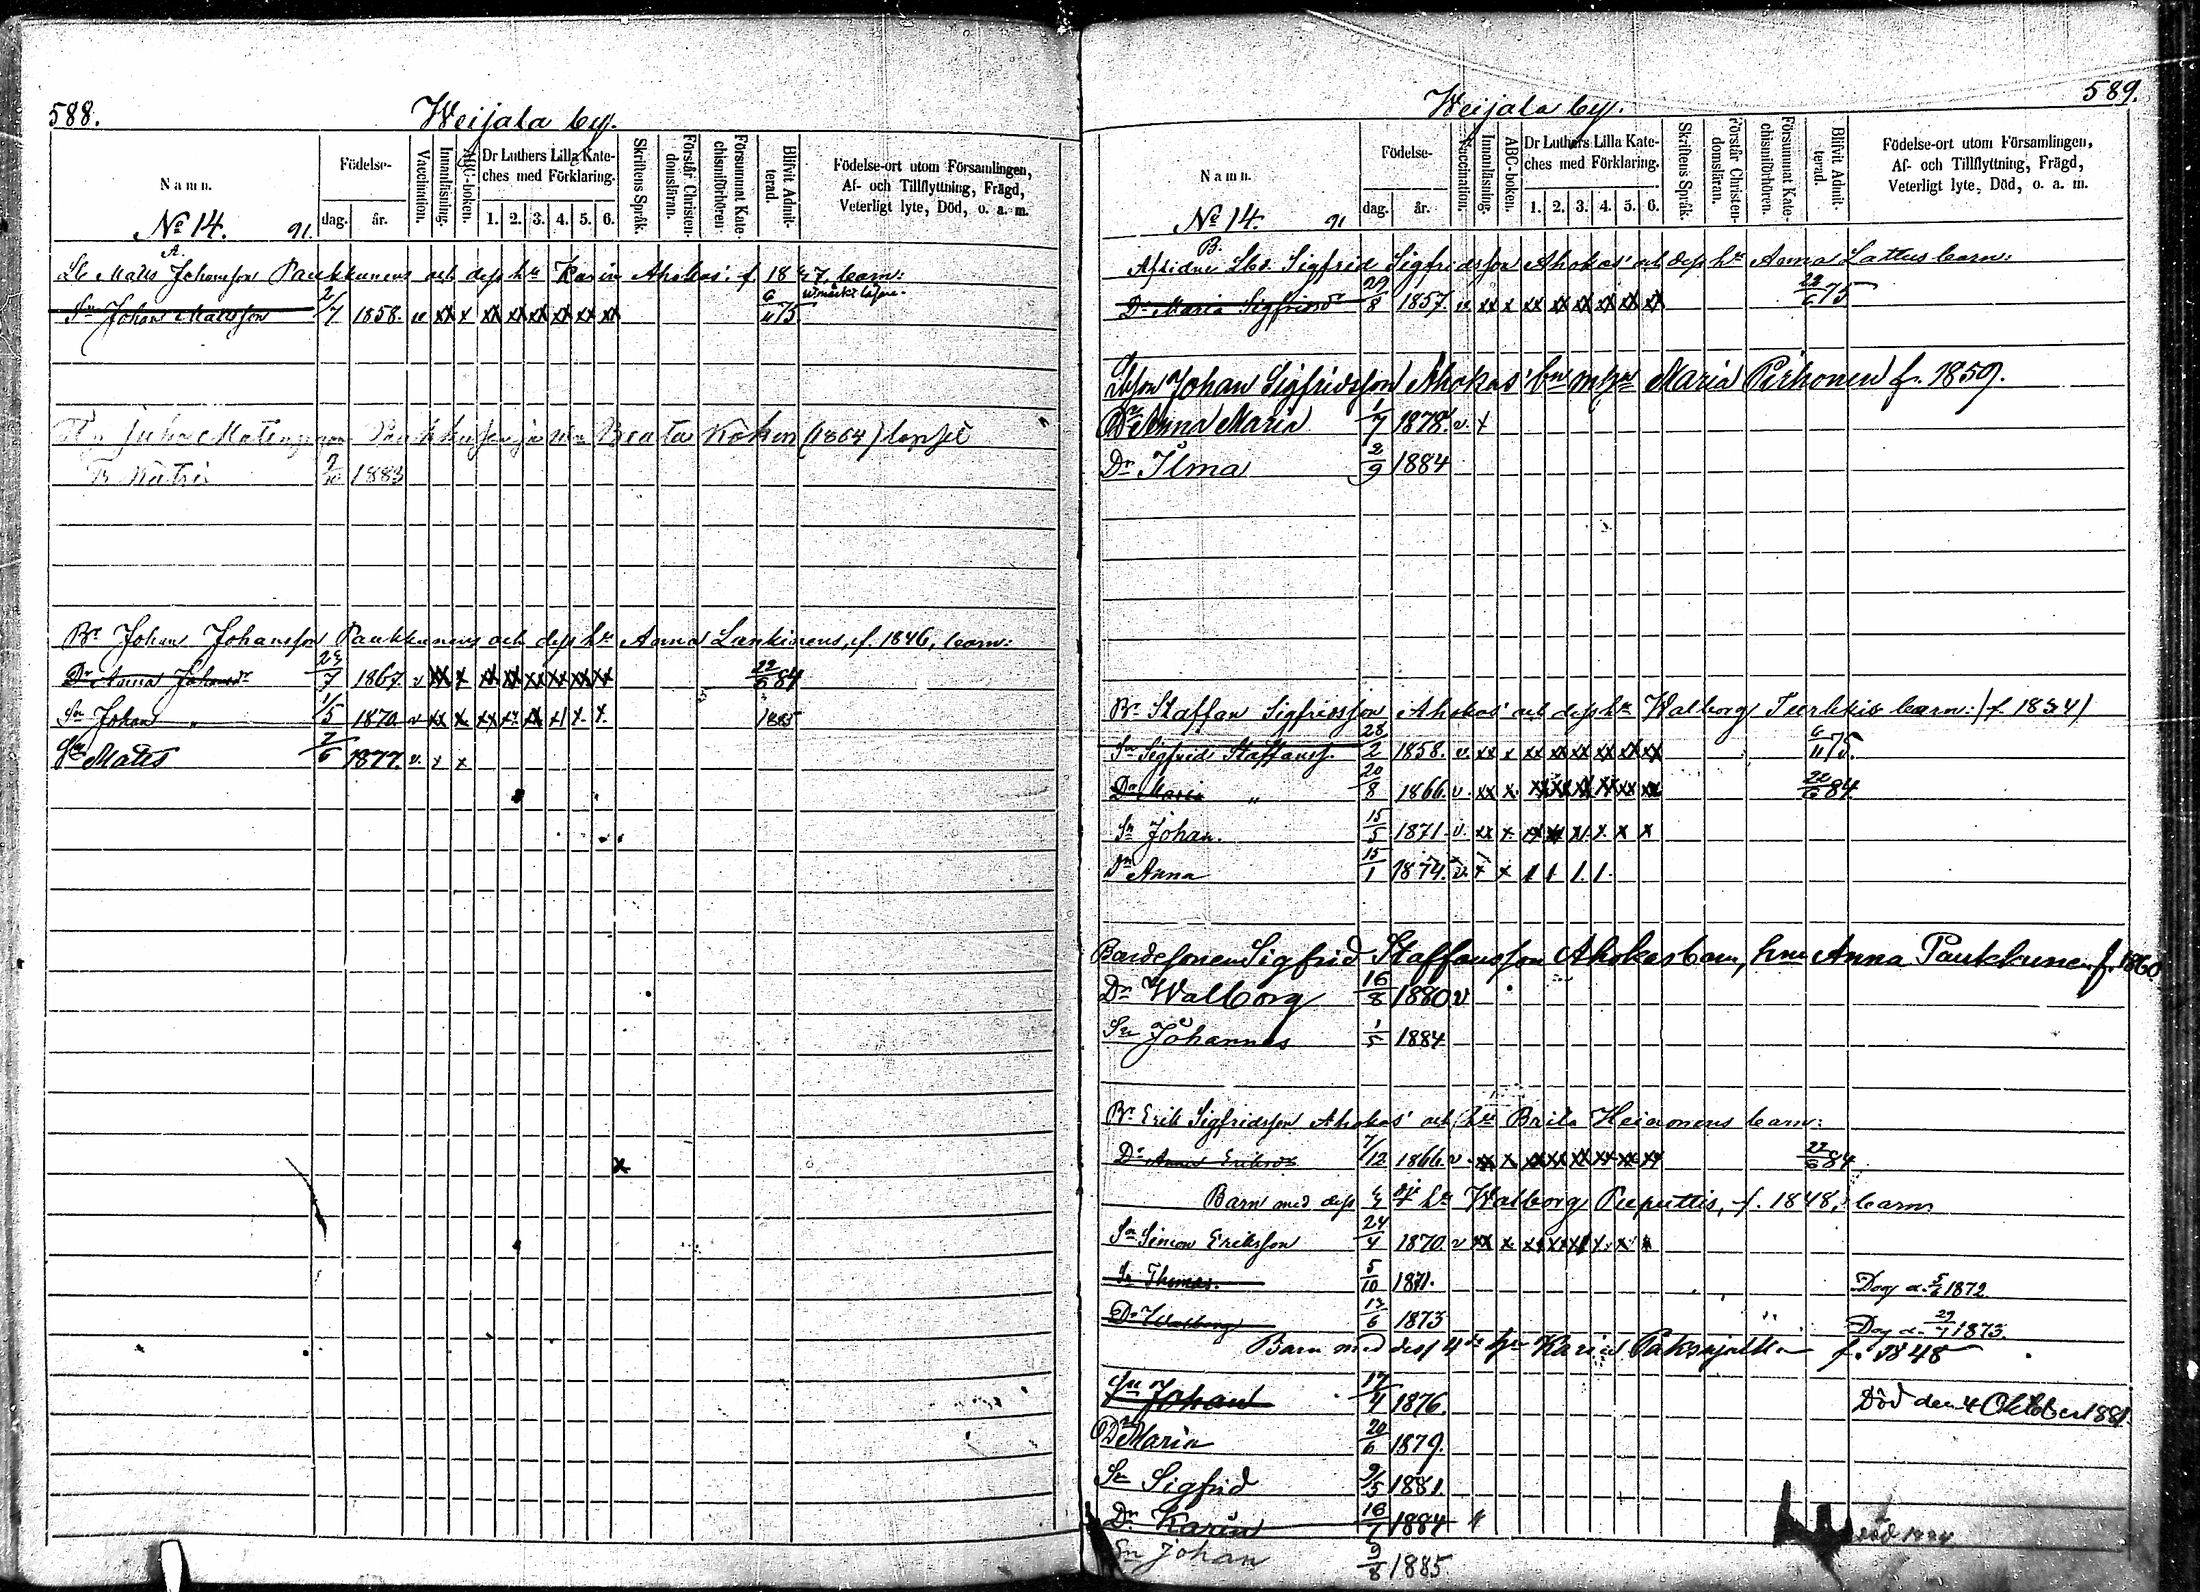 588.
Weijala by.
Namn.
Födelse-
dag.
år.
Vaccination.
Innanläsning.
ABC-boken.
Dr Luthers Lilla Kate-
ches med Förklaring.
1. 2. 3. 4. 5. 6.
Skriftens Språk.
Förstår Christen-
domsläran.
Försummat Kate-
chismiförhören.
Blifvit Admit-
terad.
Födelse-ort utom Församlingen,
Af- och Tillflyttning, Frägd,
Veterligt lyte, Död, o. a. m.
No 14. 91.
A.
Matts Johansson Paukkunens och dess hu Karin Ahokas' f. barn:
Sn Johan Mattsson 2/7 1858. v xx x xx xx xx xx xx xx 6/11 75
Beata (1864) lapset
2/10 1883
Br Johan Johansson Paukkunens och dess hu Anna Lankinens, f. 1846, barn:
Dr Anna Johansdr 7 1867. v xx x xx xx xx xx xx xx 22/6 84
Sn Johan " 1/5 1870 v xx x 1885
Sn Matts 7/6 1877. v. x x
589.
Weijala by.
Namn.
Födelse-
dag.
år.
Vaccination.
Innanläsning.
ABC-boken.
Dr Luthers Lilla Kate-
ches med Förklaring.
1. 2. 3. 4. 5. 6.
Skriftens Språk.
Förstår Christen-
domsläran.
Försummat Kate-
chismiförhören.
Blifvit Admit-
terad.
Födelse-ort utom Församlingen,
Af- och Tillflyttning, Frägd,
Veterligt lyte, Död, o. a. m.
No 14. 91
B.
Aflidne Sigfrid Sigfridsson Ahokas' och dess hu Anna Lattus barn:
Dr Maria Sigfridsdr 29/8 1857. v. xx x xx xx xx xx xx xx 22/6 75
Johan Sigfridsson Ahokas' bn m hu Maria Pirhonen f. 1859.
Dr Anna Maria 1/7 1878. v. x
Dr Ilma 2/9 1884
Br Staffan Sigfridsson Ahokas' och dess hu Walborg barn: (f. 1834)
Sn Sigfrid Staffanss. 28/2 1858. v. xx x xx xx xx xx xx xx 6/11 75.
Dr Maria " 20/8 1866. v. xx x xx xx xx xx xx xx 22/6 84
Sn Johan. 15/5 1871. v. xx x x x
Dr Anna 15/1 1874. v. x x 1 1 1. 1.
Bondesonen Sigfrid Staffansson Ahokas barn, hun Anna Paukkunen f. 1860
Dr Walborg 16/8 1880 v
Sn Johannes 1/5 1884
Br Erik Sigfridsson Ahokas' och hu Brita Heinonens barn:
Dr Anna Eriksdr 7/12 1866. v. xx x xx xx xx xx xx xx 22/6 84
Barn med dess hu Walborg Peputtis, f. 1848, barn
Sn Simon Eriksson 24/4 1870. v xx x
Sn Thomas. 5/10 1871. Dog d. 1872.
Dr Walborg 13/6 1873 Dog d. 1873.
Barn med dess 4de hu Karin f. 1848
Sn Johan 17/4 1876. Död den 4 Oktober 1881.
Dr Maria 20/6 1879.
Sn Sigfrid 9/5 1881
Dr Karin 16/7 1884 död 1884
Sn Johan 9/8 1885.